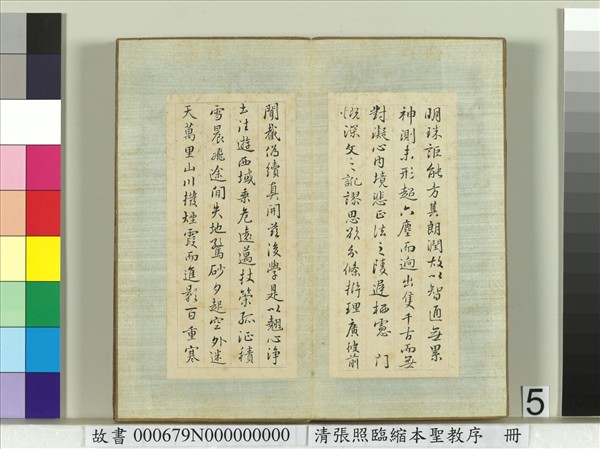 明珠詎能方其朗潤故以智通無累
神測未形超六塵而迥出隻千古而無
對凝心內境悲正法之陵遲栖慮 門
慨深文之訛謬思欲分條析理廣彼前
聞截偽續真開茲後學是以翹心淨
土往遊西域乘危遠邁杖策孤征積
雪晨飛途間失地驚砂夕起空外迷
天萬里山川撥煙霞而進影百重寒
5
故書 000679N000000000 清張照臨縮本聖教序 冊